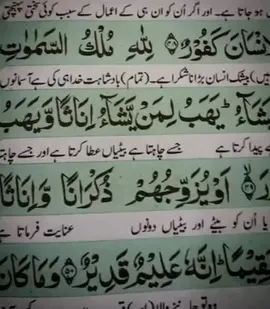 ہو جاتا ہے۔ اور اگر اُن کو ان ہی کے اعمال کے سبب کوئی سختی پہنچتی
اِنْسَانَ كَفُوْرٌ ۝۴۸ لِلّٰهِ مُلْكُ السَّمٰوٰتِ
ہیں) بیشک انسان بڑا ناشکرا ہے۔ (تمام) بادشاہت خدا ہی کی ہے آسمانوں
يَشَآءُ ؕ يَهَبُ لِمَنْ يَّشَآءُ اِنَاثًا وَّيَهَبُ
پیدا کرتا ہے جسے چاہتا ہے بیٹیاں عطا کرتا ہے اور جسے چاہتا
۝۴۹ اَوْ يُزَوِّجُهُمْ ذُكْرَانًا وَّاِنَاثًا
یا اُن کو بیٹے اور بیٹیاں دونوں عنایت فرماتا ہے
عَقِيْمًا ؕ اِنَّهٗ عَلِيْمٌ قَدِيْرٌ ۝۵۰ وَمَا كَانَ